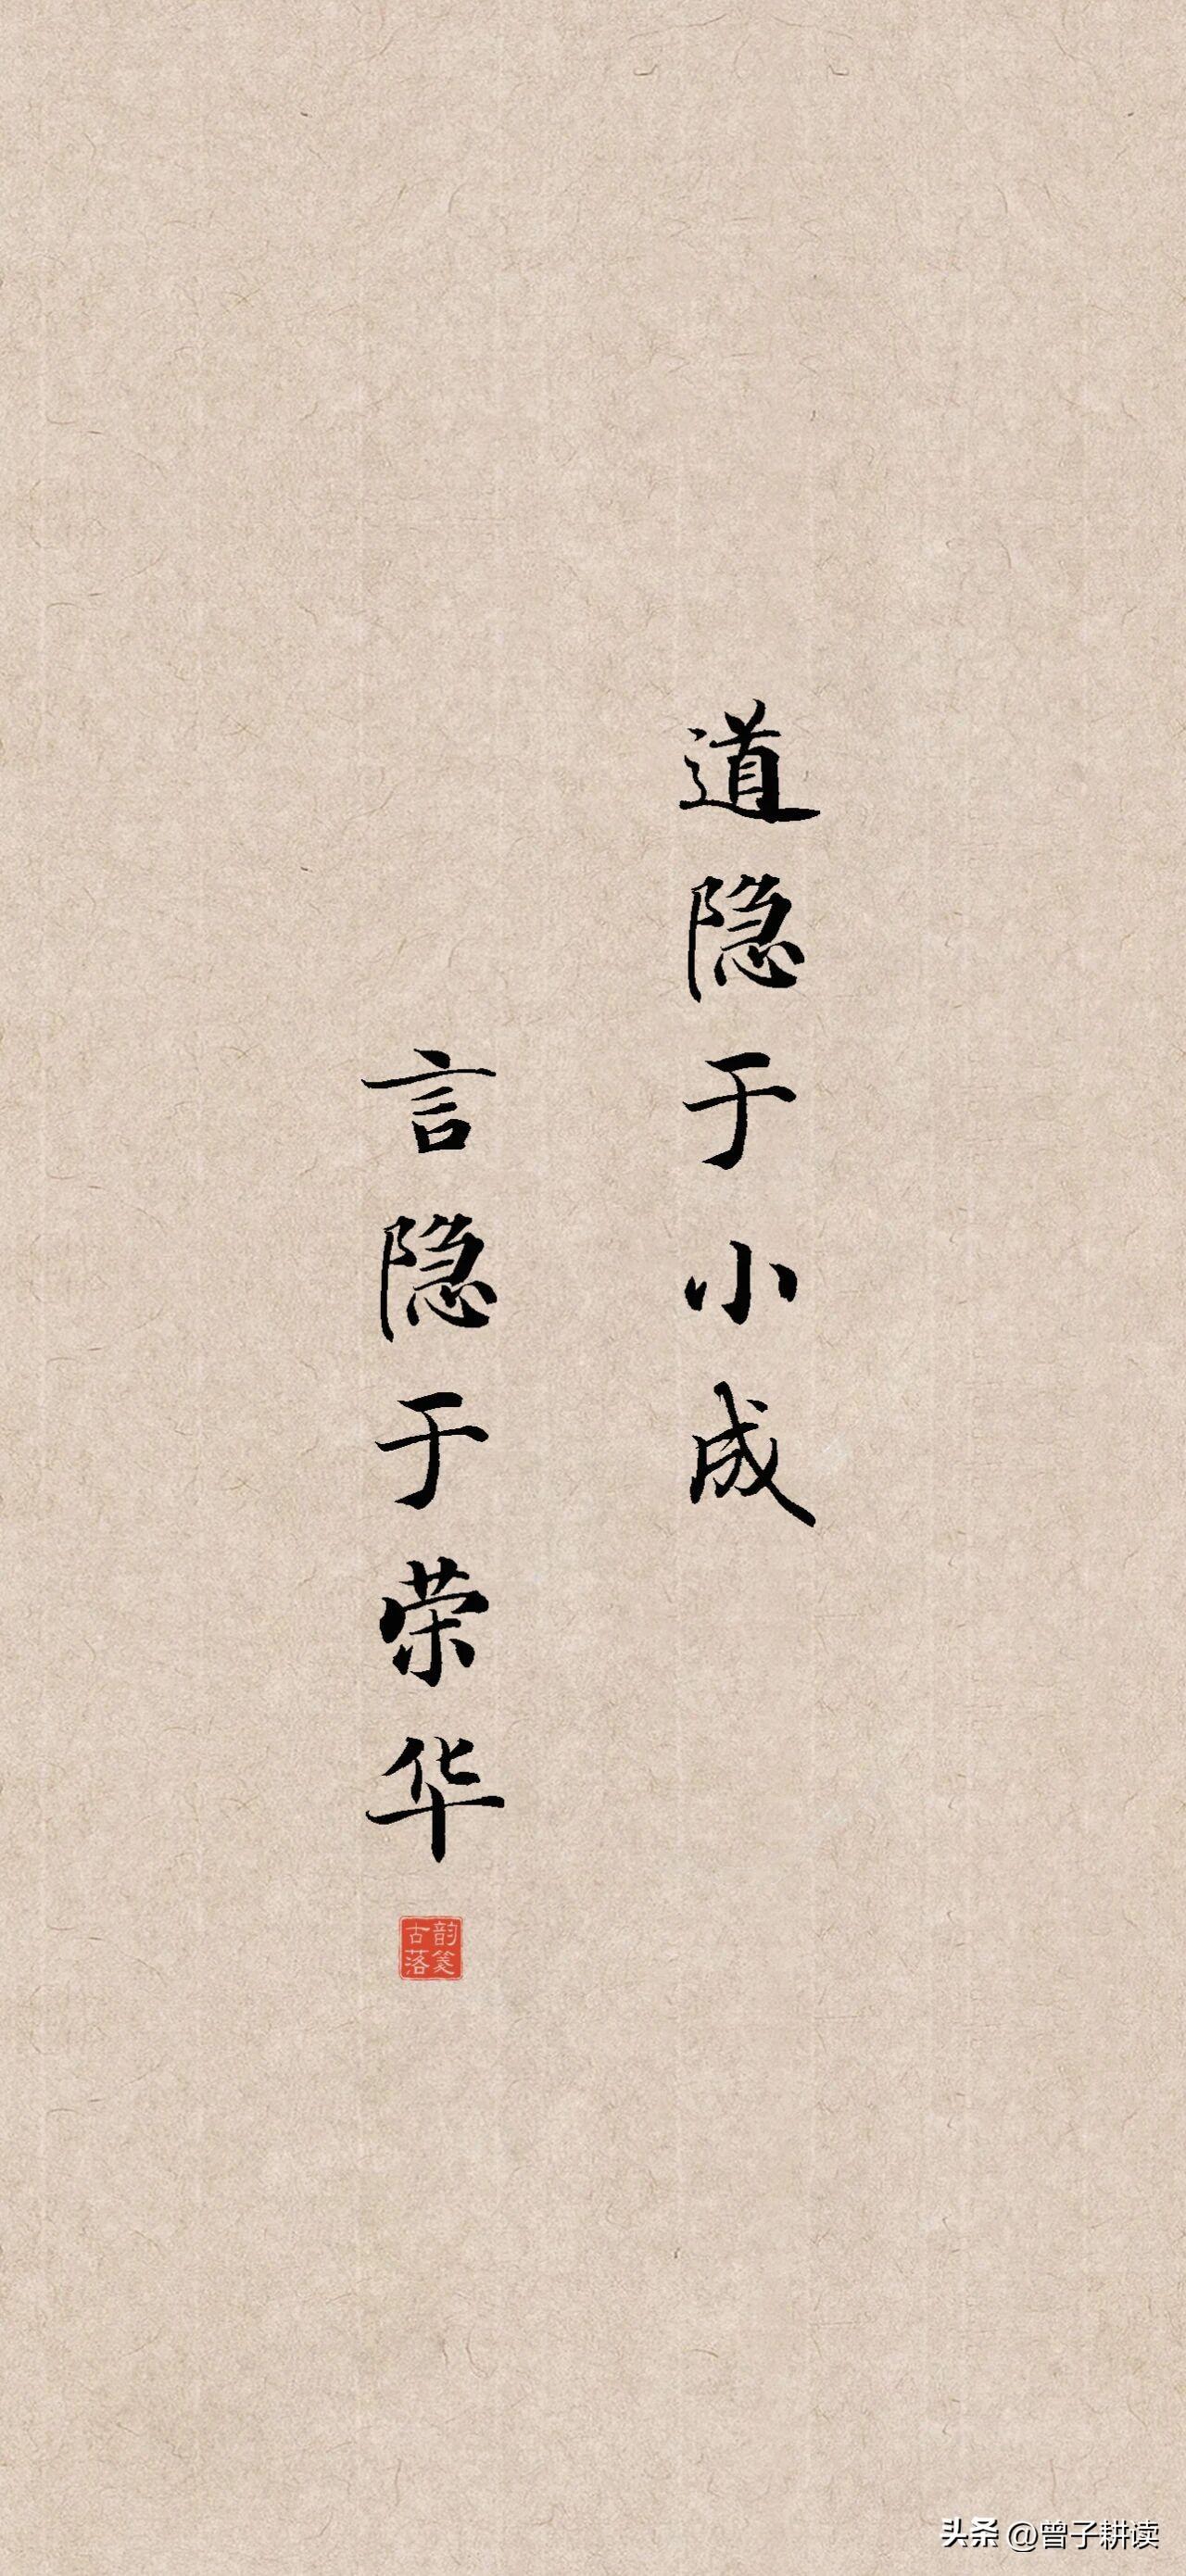 道隐于小成
言隐于荣华
头条 @曾子耕读